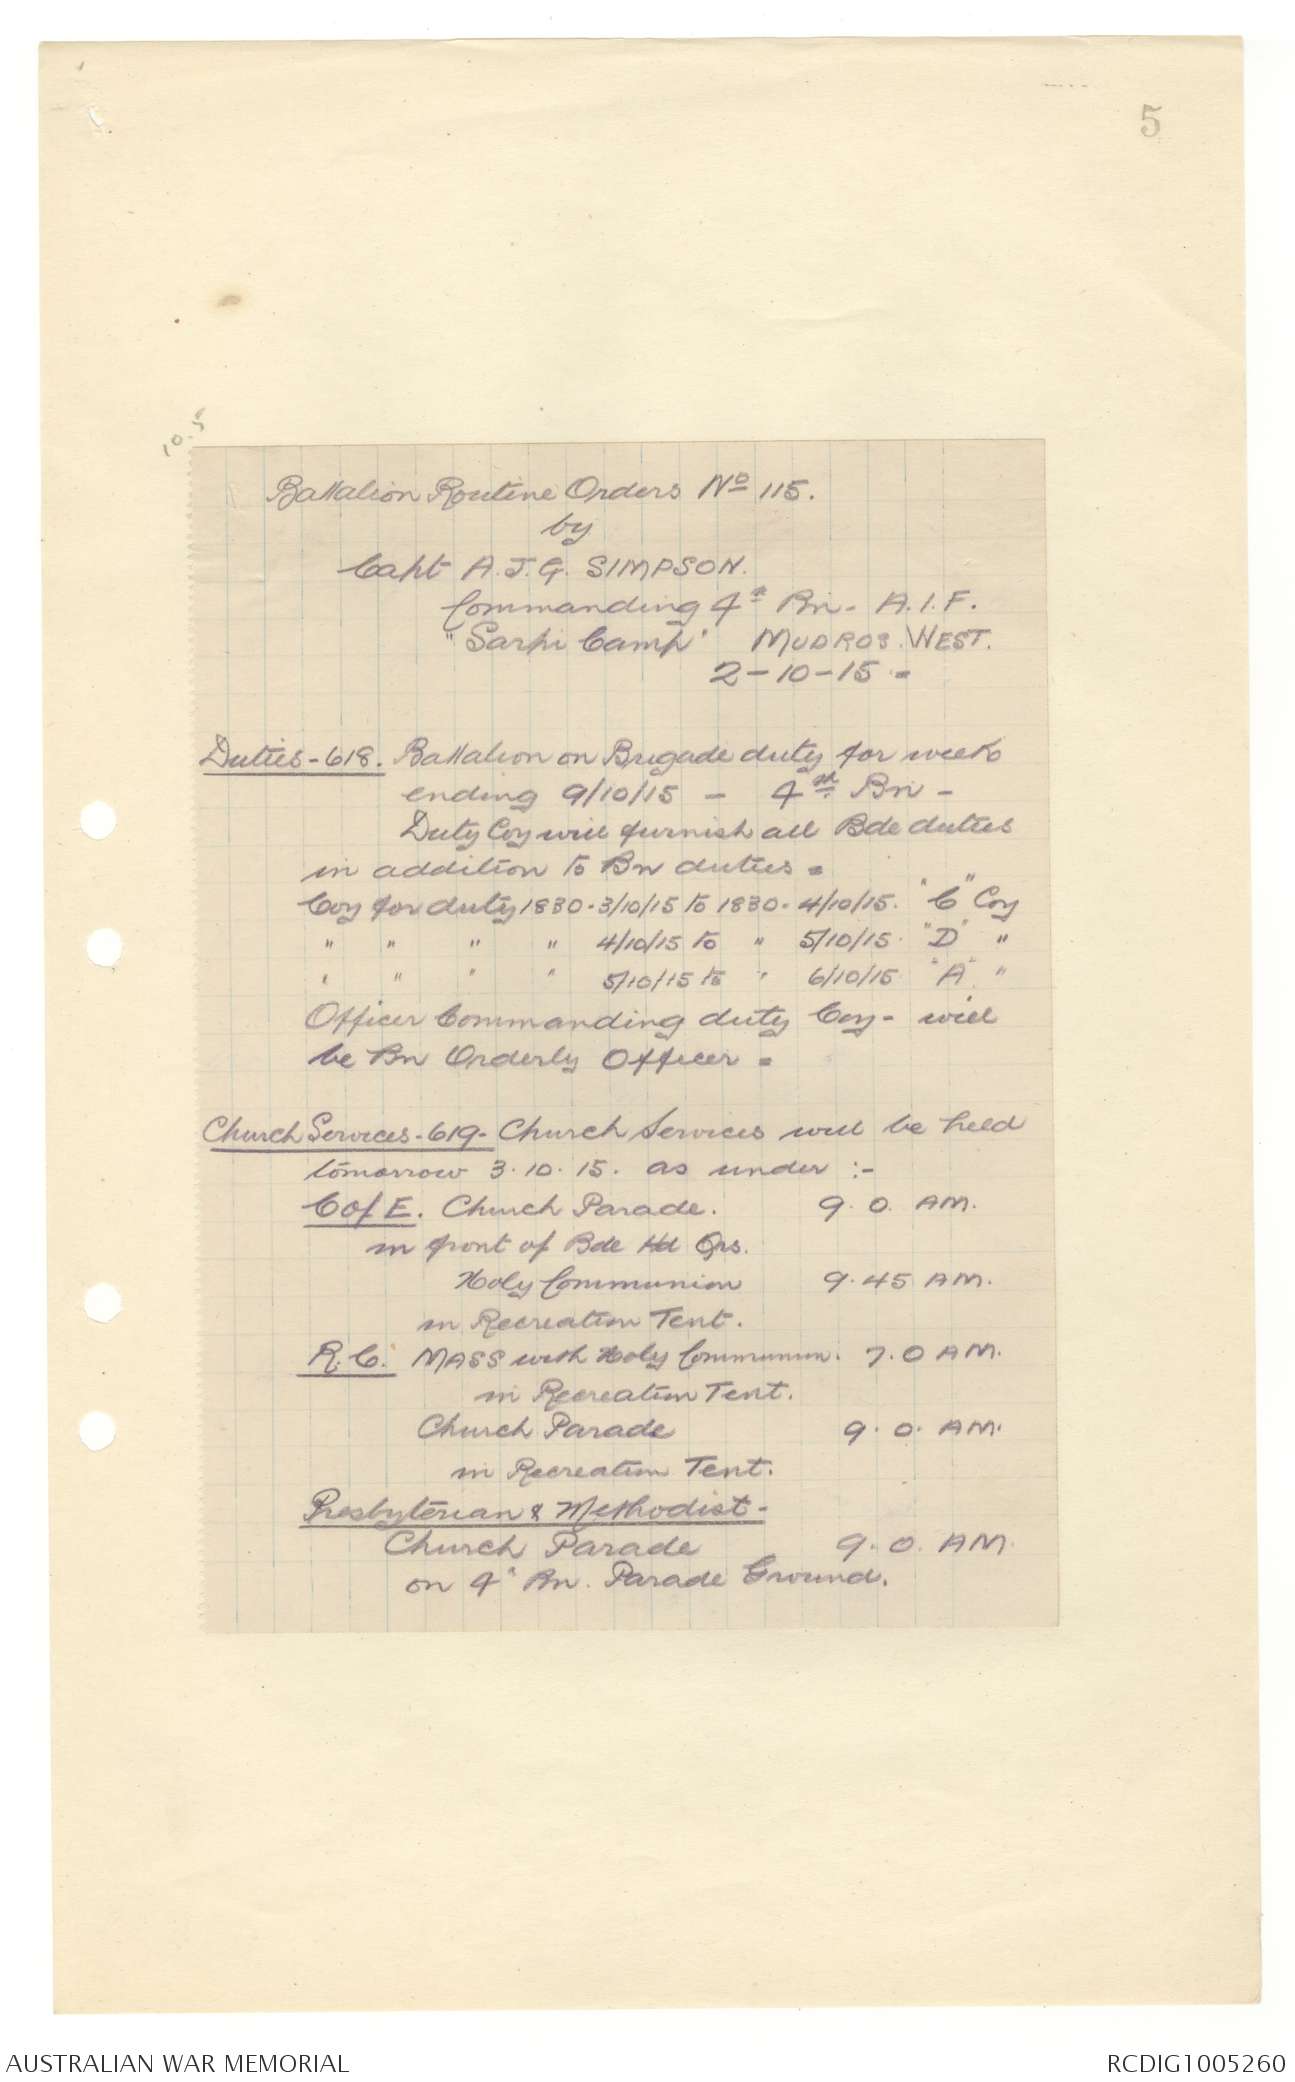 5
10.5
Battalion Routine Orders No 115.
by
Capt A.J.G. SIMPSON.
Commanding 4th Bn - A.I.F.
"Sarpi Camp" MUDROS. WEST.
2-10-15.
Duties - 618. Battalion on Brigade duty for week
ending 9/10/15 - 4th Bn -
Duty Coy will furnish all Bde duties
in addition to Bn duties.
Coy for duty 1830. 3/10/15 to 1830. 4/10/15. "C" Coy
" " " " 4/10/15 to " 5/10/15. "D" "
" " " " 5/10/15 to " 6/10/15 "A" "
Officer Commanding duty Coy - will
be Bn Orderly Officer.
Church Services - 619 - Church Services will be held
tomorrow 3.10.15. as under :-
C of E. Church Parade. 9.0. AM.
in front of Bde Hd Qrs.
Holy Communion 9.45 AM.
in Recreation Tent.
R.C. MASS with Holy Communion. 7.0 AM.
in Recreation Tent.
Church Parade 9.0. AM.
in Recreation Tent.
Presbyterian & Methodist -
Church Parade 9.0. AM.
on 4" Bn. Parade Ground.
AUSTRALIAN WAR MEMORIAL
RCDIG1005260